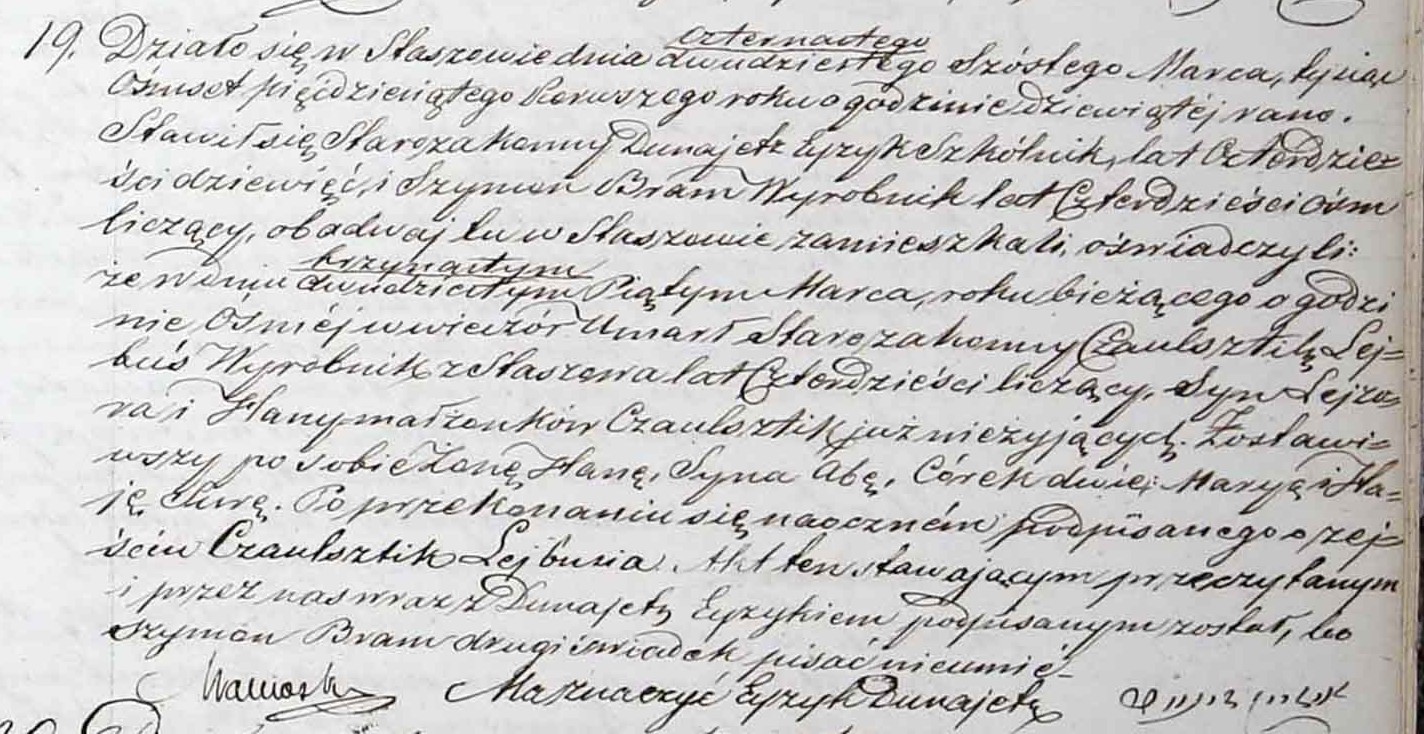 19. Działo się w Staszowie dnia czternastego dwudziestego Szóstego Marca, tysiąc
Ośmset pięćdziesiątego Pierwszego roku o godzinie dziewiątéj rano.
Stawił się Starozakonny Dunajetz Eyzyk Szkólnik, lat Czterdzie=
ści dziewięć, i Szymon Bram Wyrobnik lat Czterdzieści ośm
liczący, obadwaj tu w Staszowie zamieszkali, oświadczyli:
że w dniu trzynastym dwudziestym Piątym Marca, roku bieżącego o godzi
nie Ośméj w wieczór Umarł Starozakonny Czaulsztik Lej=
buś Wyrobnik z Staszowa lat Czterdzieści liczący, Syn Lejzo=
ra i Hany małżonków Czaulsztik już nieżyjących. Zostawi=
wszy po sobie Żonę Hanę, Syna Abę, Córek dwie; Maryą i Ha=
ję. Po przekonaniu się naoczném podpisanego o zej=
ściu Czaulsztik Lejbusia. Akt ten stawającym przeczytanym
i przez nas wraz z Dunajetz Eyzykiem podpisanym został, bo
Szymon Bram drugi świadek pisać nieumié.
Ma znaczyć Eyzyk Dunajetz